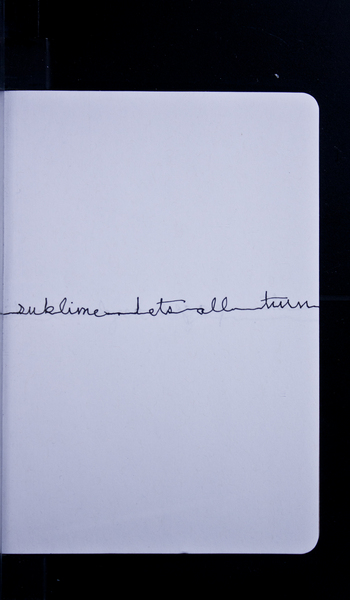 sublime lets all turn